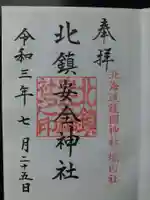 奉拝
北海道護國神社境内社
北鎮安全神社
令和三年七月二十五日